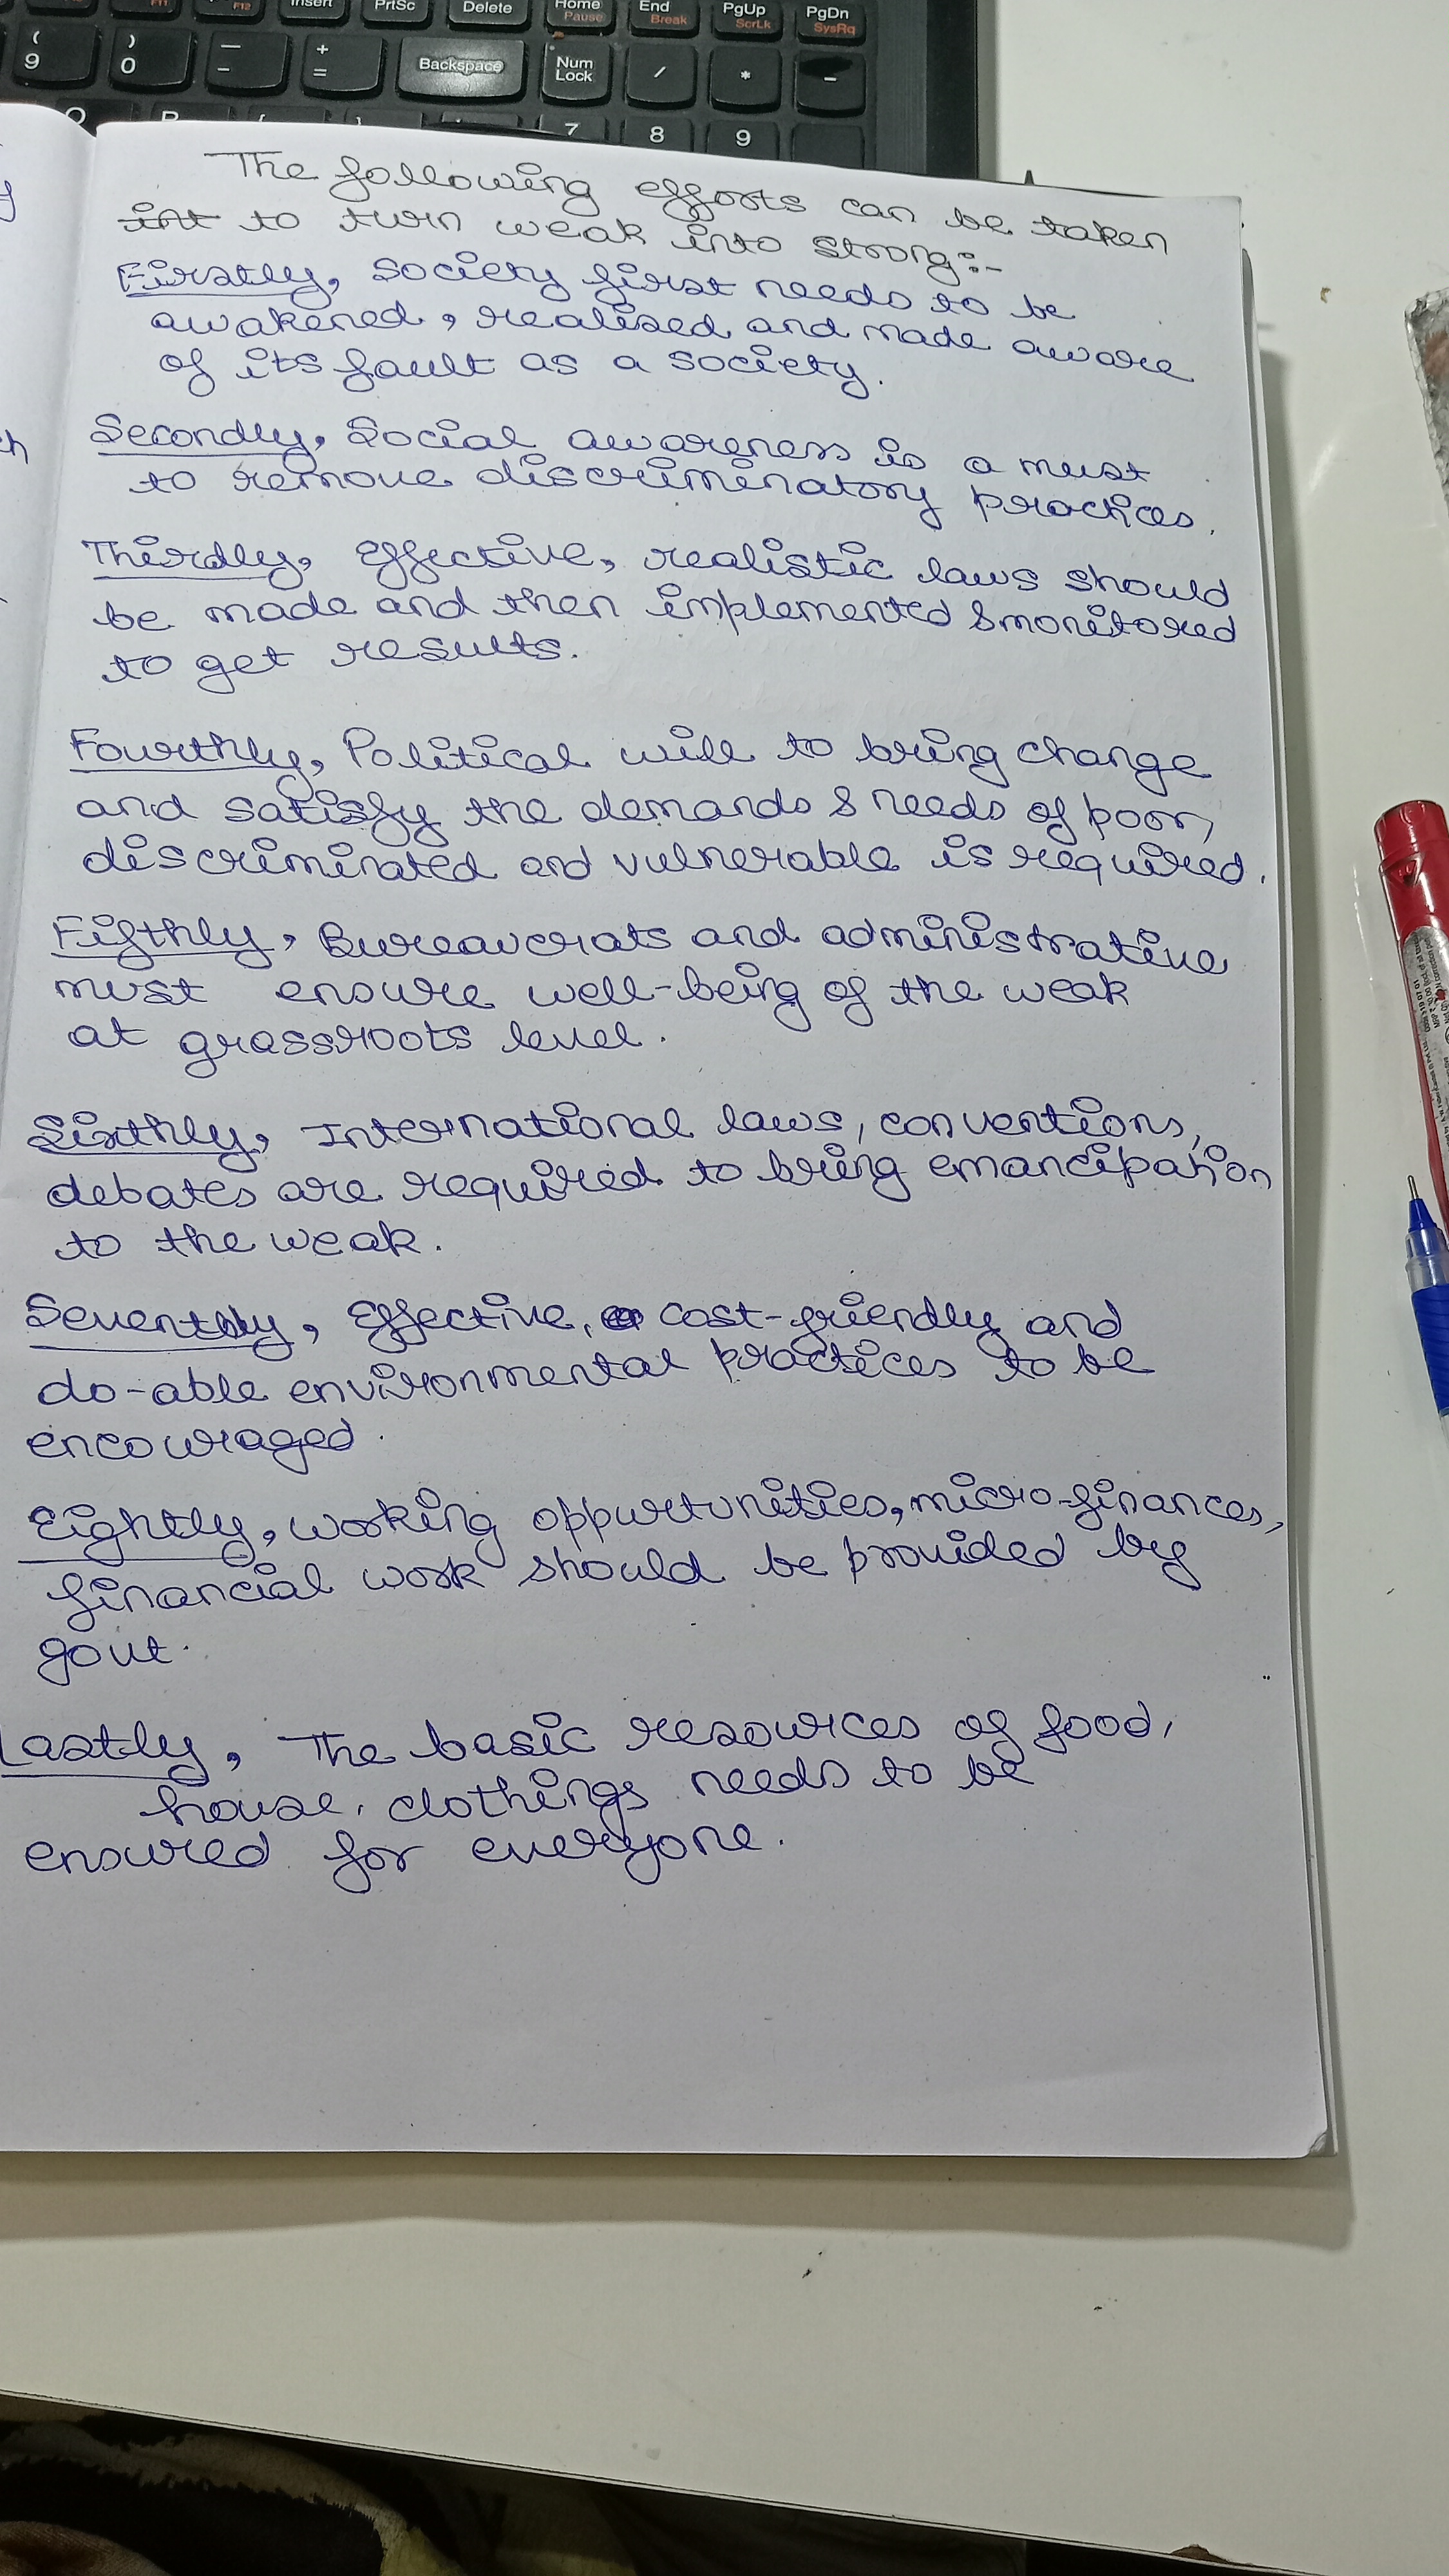 Insert
PrtSc
Delete
Home
Pause
End
Break
PgUp
ScrLk
PgDn
SysRq
F11
F12
( 9
) 0
— -
+ =
Backspace
Num Lock
/
*
-
7
8
9
The following efforts can be taken
int to turn weak into strong:-
Firstly, Society first needs to be
awakened, realised and made aware
of its fault as a society.
Secondly, Social awareness is a must
to remove discriminatory practices.
Thirdly, Effective, realistic laws should
be made and then implemented & monitored
to get results.
Fourthly, Political will to bring change
and satisfy the demands & needs of poor,
discriminated and vulnerable is required.
Fifthly, Bureaucrats and administrative
must ensure well-being of the weak
at grassroots level.
Sixthly, International laws, conventions,
debates are required to bring emancipation
to the weak.
Seventhly, Effective, cost-friendly and
do-able environmental practices to be
encouraged.
Eightly, working oppurtunities, micro-finances,
financial work should be provided by
govt.
Lastly, The basic resources of food,
house, clothings needs to be
ensured for everyone.